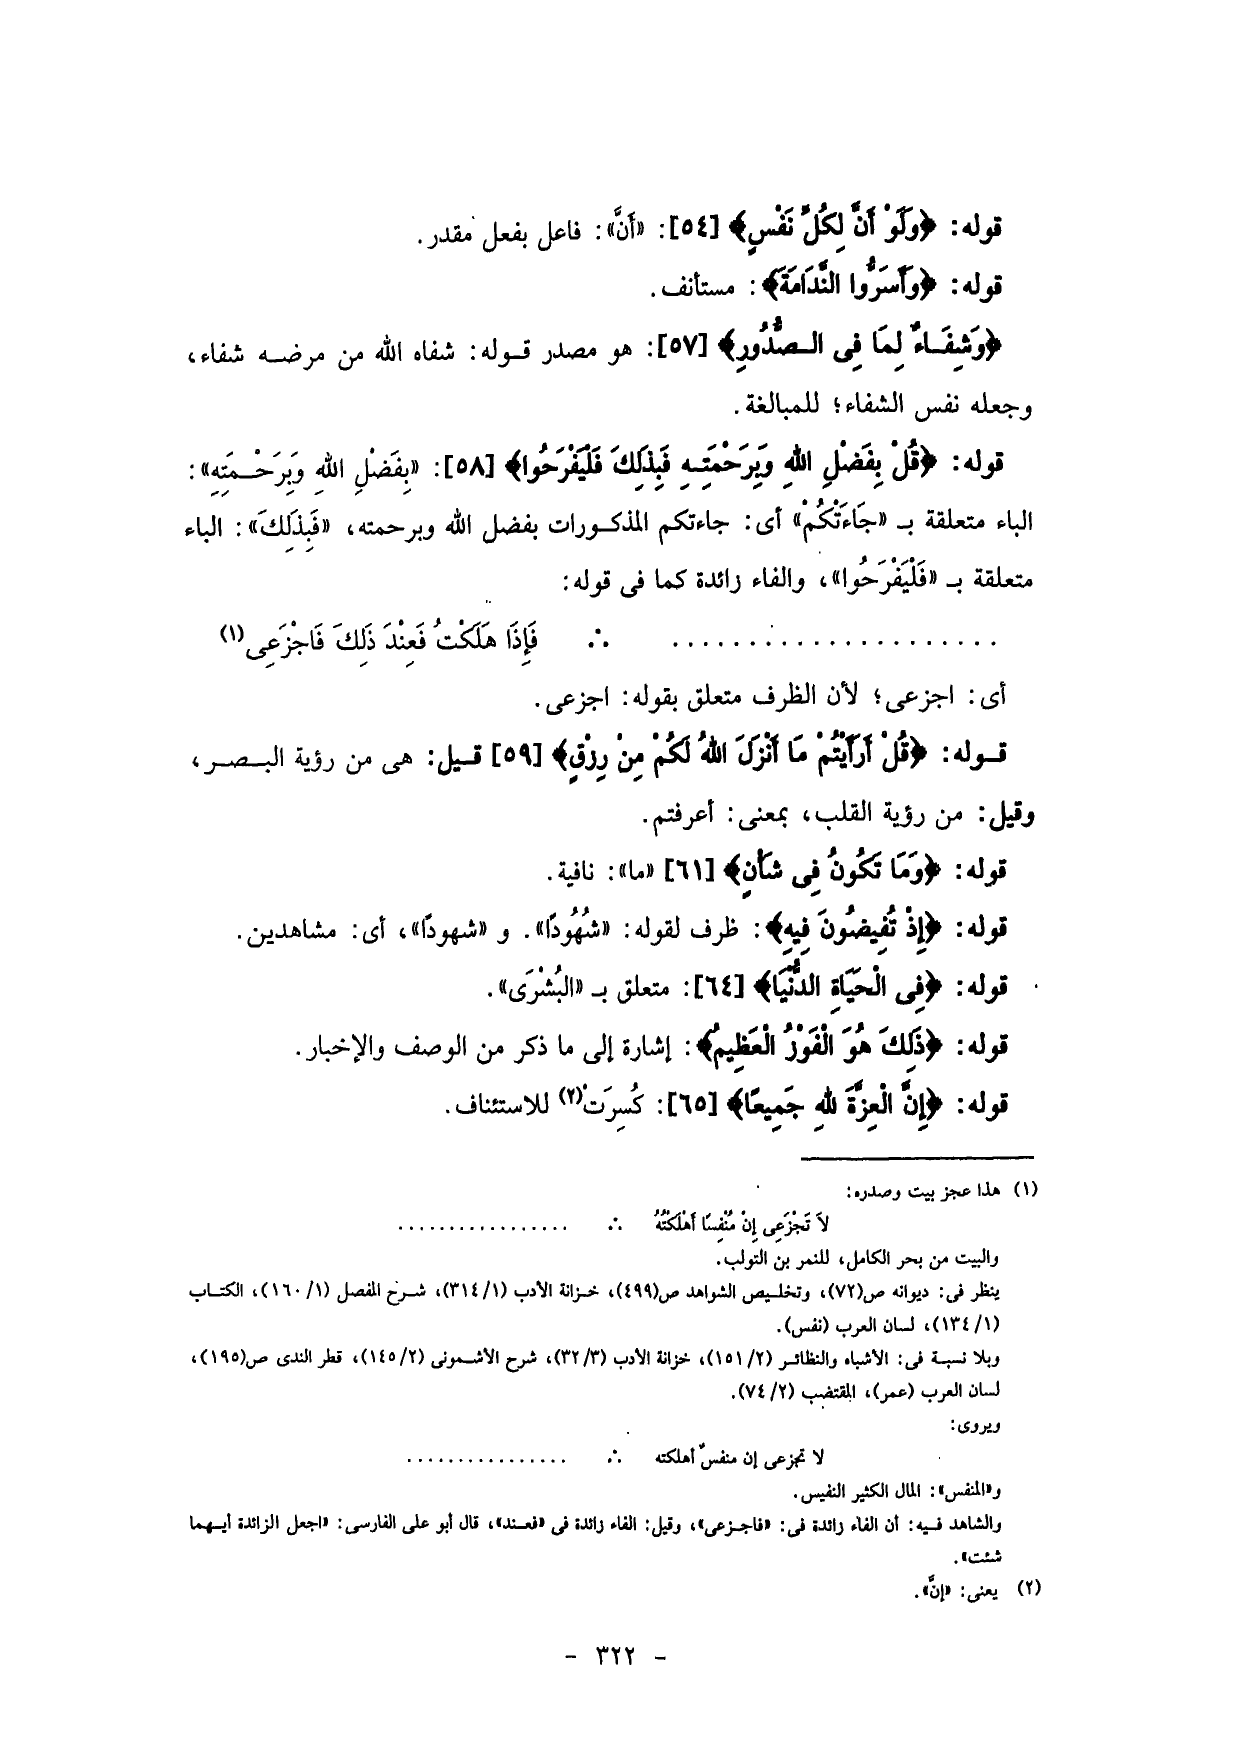 قوله: ﴿وَلَوْ أَنَّ لِكُلِّ نَفْسٍ﴾ [٥٤]: «أَنَّ»: فاعل بفعل مقدر.
قوله: ﴿وَأَسَرُّوا النَّدَامَةَ﴾: مستأنف.
﴿وَشِفَاءٌ لِمَا فِى الصُّدُورِ﴾ [٥٧]: هو مصدر قوله: شفاه الله من مرضه شفاء،
وجعله نفس الشفاء؛ للمبالغة.
قوله: ﴿قُلْ بِفَضْلِ اللهِ وَبِرَحْمَتِهِ فَبِذَلِكَ فَلْيَفْرَحُوا﴾ [٥٨]: «بِفَضْلِ اللهِ وَبِرَحْمَتِهِ»:
الباء متعلقة بـ «جَاءَتْكُمْ» أى: جاءتكم المذكورات بفضل الله وبرحمته، «فَبِذَلِكَ»: الباء
متعلقة بـ «فَلْيَفْرَحُوا»، والفاء زائدة كما فى قوله:
..................... ∴ فَإِذَا هَلَكْتُ فَعِنْدَ ذَلِكَ فَاجْزَعِى(١)
أى: اجزعى؛ لأن الظرف متعلق بقوله: اجزعى.
قوله: ﴿قُلْ أَرَأَيْتُمْ مَا أَنْزَلَ اللهُ لَكُمْ مِنْ رِزْقٍ﴾ [٥٩] قيل: هى من رؤية البصر،
وقيل: من رؤية القلب، بمعنى: أعرفتم.
قوله: ﴿وَمَا تَكُونُ فِى شَأْنٍ﴾ [٦١] «ما»: نافية.
قوله: ﴿إِذْ تُفِيضُونَ فِيهِ﴾: ظرف لقوله: «شُهُودًا». و «شهودًا»، أى: مشاهدين.
قوله: ﴿فِى الْحَيَاةِ الدُّنْيَا﴾ [٦٤]: متعلق بـ «البُشْرَى».
قوله: ﴿ذَلِكَ هُوَ الْفَوْزُ الْعَظِيمُ﴾: إشارة إلى ما ذكر من الوصف والإخبار.
قوله: ﴿إِنَّ الْعِزَّةَ لِلهِ جَمِيعًا﴾ [٦٥]: كُسِرَتْ(٢) للاستئناف.
(١) هذا عجز بيت وصدره:
لاَ تَجْزَعِى إِنْ مُنْفِسًا أَهْلَكْتُهُ ∴ .................
والبيت من بحر الكامل، للنمر بن التولب.
ينظر فى: ديوانه ص(٧٢)، وتخليص الشواهد ص(٤٩٩)، خزانة الأدب (١/ ٣١٤)، شرح المفصل (١/ ١٦٠)، الكتاب
(١/ ١٣٤)، لسان العرب (نفس).
وبلا نسبة فى: الأشباه والنظائر (٢/ ١٥١)، خزانة الأدب (٣/ ٣٢)، شرح الأشمونى (٢/ ١٤٥)، قطر الندى ص(١٩٥)،
لسان العرب (عمر)، المقتضب (٢/ ٧٤).
ويروى:
لا تجزعى إن منفسٌ أهلكته ∴ ................
و«المنفس»: المال الكثير النفيس.
والشاهد فيه: أن الفاء زائدة فى: «فاجزعى»، وقيل: الفاء زائدة فى «فعند»، قال أبو على الفارسى: «اجعل الزائدة أيهما
شئت».
(٢) يعنى: «إنَّ».
- ٣٢٢ -